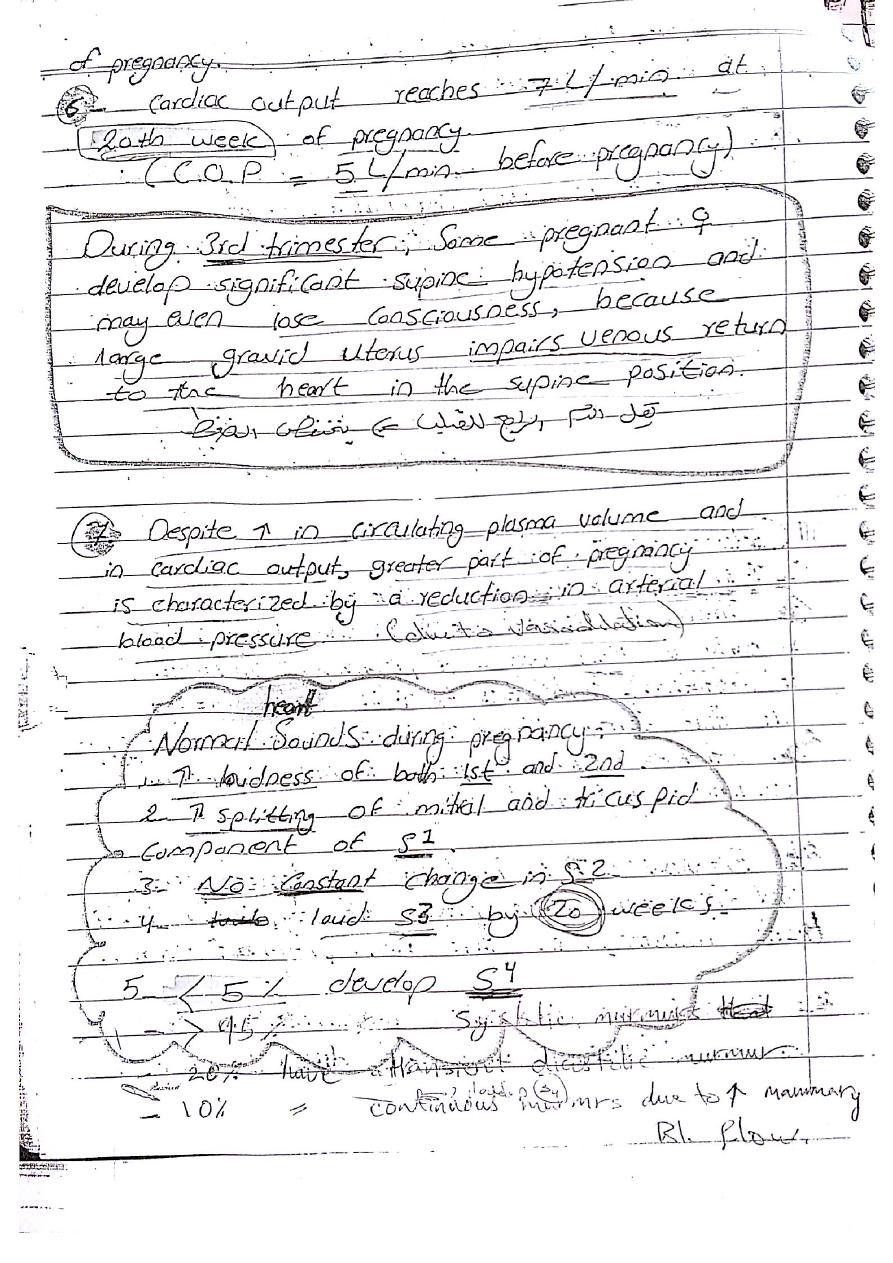 of pregnancy.
6- Cardiac output reaches 7 L/min at
20th week of pregnancy.
(C.O.P = 5 L/min before pregnancy)
During 3rd trimester, Some pregnant ♀
develop significant supine hypotension and
may even lose Consciousness, because
large gravid uterus impairs venous return
to the heart in the supine position.
الدم الراجع للقلب
7- Despite ↑ in circulating plasma volume and
in cardiac output, greater part of pregnancy
is characterized by a reduction in arterial
blood pressure (due to vasodilation)
heart
Normal Sounds during pregnancy:
1. ↑ loudness of both 1st and 2nd
2- ↑ splitting of mitral and tricuspid
Component of S1.
3- No Constant change in S2
4- loud S3 by 20 weeks
5- < 5% develop S4
- > 95% Systolic murmurs
- 20% have transient diastolic murmur.
- 10% = continuous murmrs due to ↑ mammary
Bl. flow.